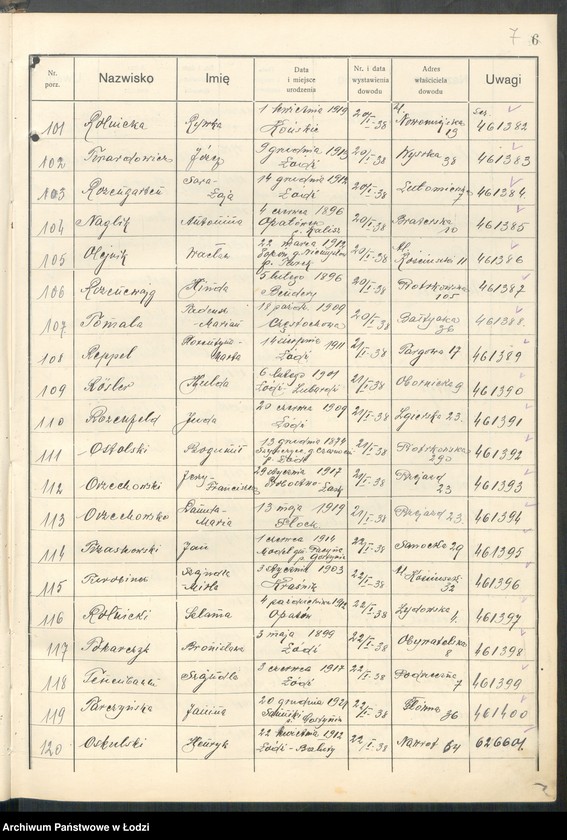 7 6
Nr. porz. Nazwisko Imię Data i miejsce urodzenia Nr. i data wystawienia dowodu Adres właściciela dowodu Uwagi
101 Rolnicka Rywka 1 kwietnia 1919 Końskie 20/I-38 Ser. 461382
102 Józef 9 grudnia 1913 Łódź 20/I-38 Wysoka 38 461383
103 Sara-Łaja 14 grudnia Łódź 20/I-38 Lutomierska 7 461384
104 Naglik Antonina 4 czerwca 1896 Opatówek p. Kalisz 20/I-38 Brzeźna 10 461385
105 Olejnik Wacław 22 marca 1912 p. Turek 20/I-38 Ul. Kościuszki 11 461386
106 Hinda 5 lutego 1896 Bendery 20/I-38 Piotrkowska 105 461387
107 Tomala Tadeusz-Marian 18 paźdz. 1909 Częstochowa 20/I-38 Bałtycka 36 461388
108 Reppel 14 sierpnia 1911 Łódź 21/I-38 Targowa 17 461389
109 Rösler Hulda 6 lutego 1901 Łódź 21/I-38 Obornicka 9 461390
110 Rozenfeld Juda 20 czerwca 1909 Łódź 21/I-38 Zgierska 23. 461391
111 Ostalski Bogumił 13 grudnia 1874 21/I-38 Piotrkowska 290 461392
112 Orzechowski Jerzy-Franciszek 29 stycznia 1917 21/I-38 Przejazd 23 461393
113 Orzechowska Danuta-Maria 13 maja 1919 Płock 21/I-38 Przejazd 23. 461394
114 Jan 1 czerwca 1914 22/I-38 Sanocka 29 461395
115 Szajndla Mirla 3 stycznia 1903 Kraśnik 22/I-38 Ul. Kościuszki 32 461396
116 Rolnicki Salama 4 października 1912 Opatów 22/I-38 Żydowska 4. 461397
117 Tokarczyk Bronisława 3 maja 1899 Łódź 22/I-38 Obywatelska 8 461398
118 Tenenbaum 3 czerwca 1917 Łódź 22/I-38 Podrzeczna 7 461399
119 Tarczyńska Janina 20 grudnia 22/I-38 Główna 36 461400
120 Oskulski Henryk 22 kwietnia 1912 Łódź-Bałuty 22/I-38 Nawrot 64 626601.
Archiwum Państwowe w Łodzi